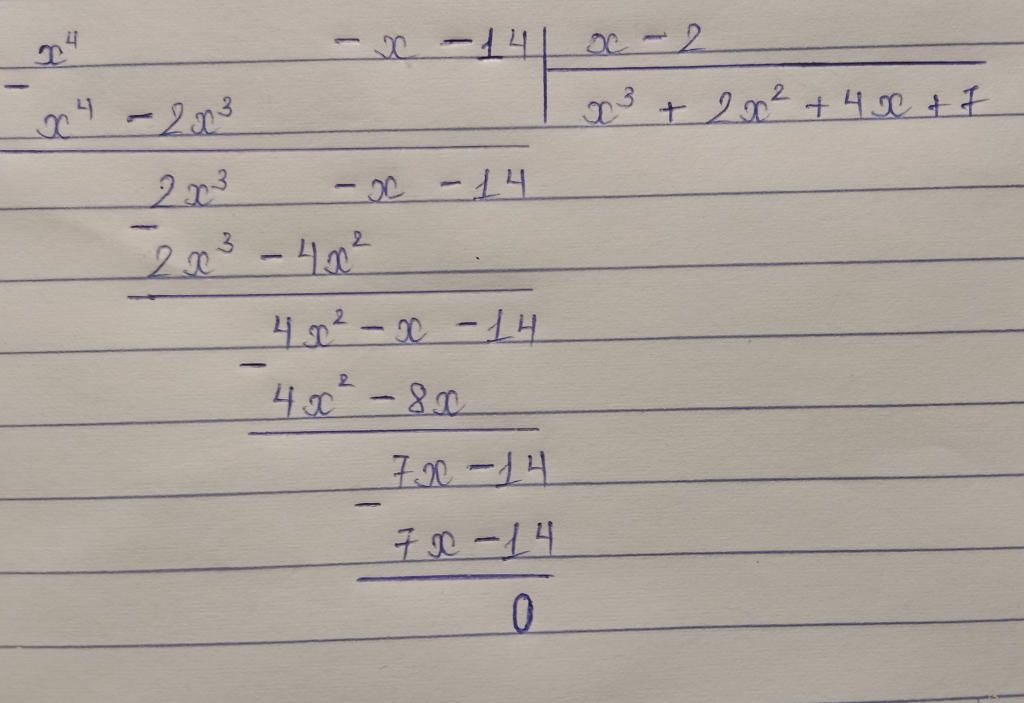 x⁴ - x - 14 | x - 2
- x⁴ - 2x³ | x³ + 2x² + 4x + 7
2x³ - x - 14
- 2x³ - 4x²
4x² - x - 14
- 4x² - 8x
7x - 14
- 7x - 14
0